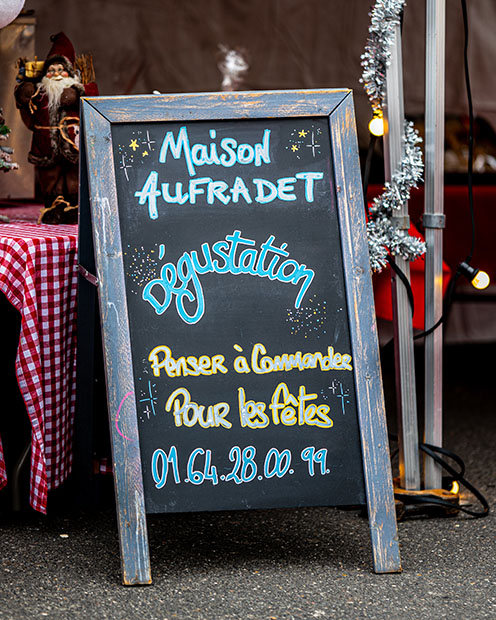 Maison
AUFRADET
Dégustation
Penser à Commander
Pour les fêtes
01.64.28.00.99.